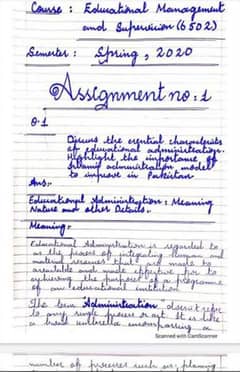 Course : Educational Management
and Supervision (6502)
Semester : Spring, 2020
Assignment no: 1
Q.1
Discuss the essential characteristics
of educational administration.
Highlight the importance of
Islamic administration model
to improve in Pakistan
Ans:-
Educational Administration: Meaning
Nature and other Details.
Meaning:-
Educational Administration is regarded to
as the process of integrating human and
material resources that are made to
available and made effective for to
achieving the purposes of a programme
of an educational institution.
The term "Administration" doesn't refer
to any single process or act. It is like
a broad umbrella encompassing a
Scanned with CamScanner
number of processes such as: planning